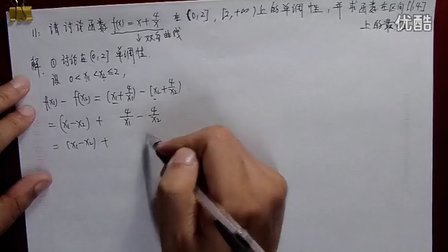 11: 请讨论函数 f(x) = x + 4/x 在 (0,2], [2,+∞) 上的单调性, 并求函数在区间[1,4]
↓双勾曲线 上的最
解: ① 讨论在(0,2] 单调性
设 0 < x₁ < x₂ ≤ 2,
f(x₁) - f(x₂) = (x₁ + 4/x₁) - (x₂ + 4/x₂)
= (x₁ - x₂) + 4/x₁ - 4/x₂
= (x₁ - x₂) +
YOUKU 优酷